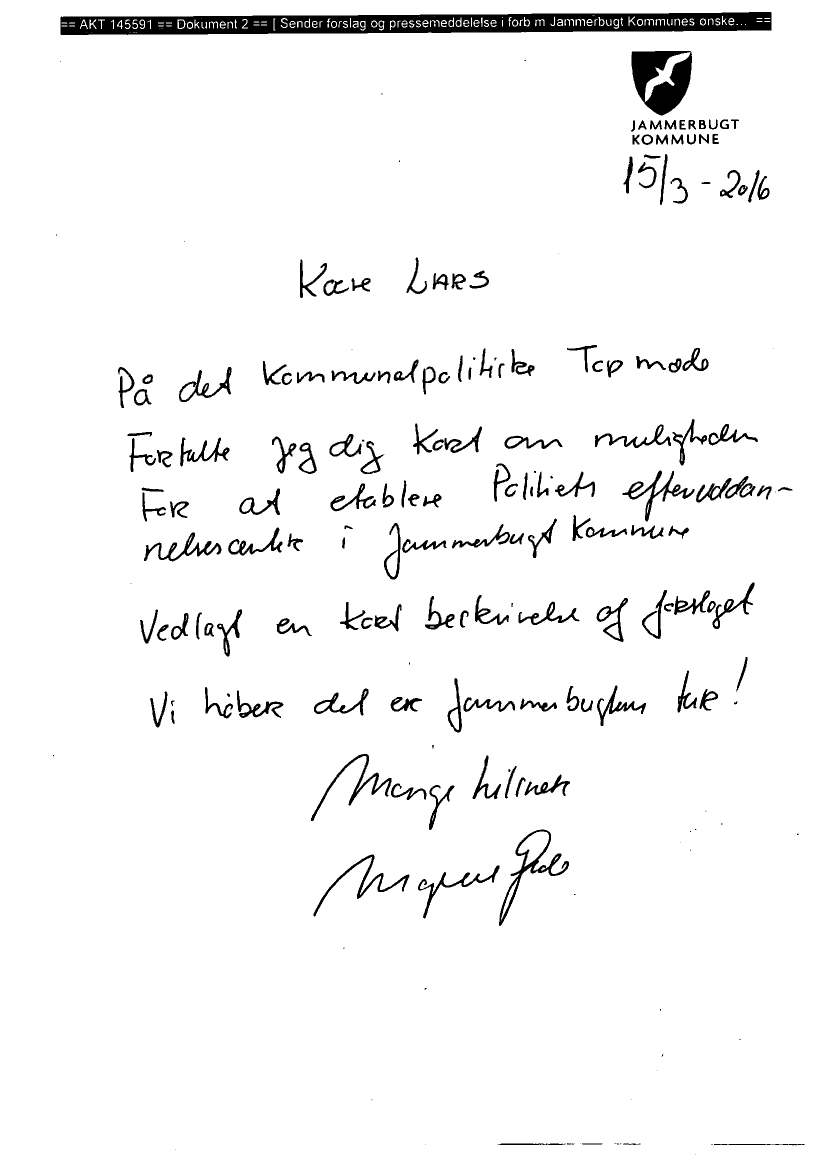 == AKT 145591 == Dokument 2 == [ Sender forslag og pressemeddelelse i forb m Jammerbugt Kommunes ønske... ==
JAMMERBUGT
KOMMUNE
15/3 - 2016
Kære LARS
På det Kommunalpolitiske Topmøde
Fortalte jeg dig Kort om muligheden
For at etablere Politiets efteruddan-
nelsescenter i Jammerbugt Kommune
Vedlagt en kort beskrivelse af forslaget
Vi håber det er Jammerbugtens tur!
Mange hilsner
Mogens Gade